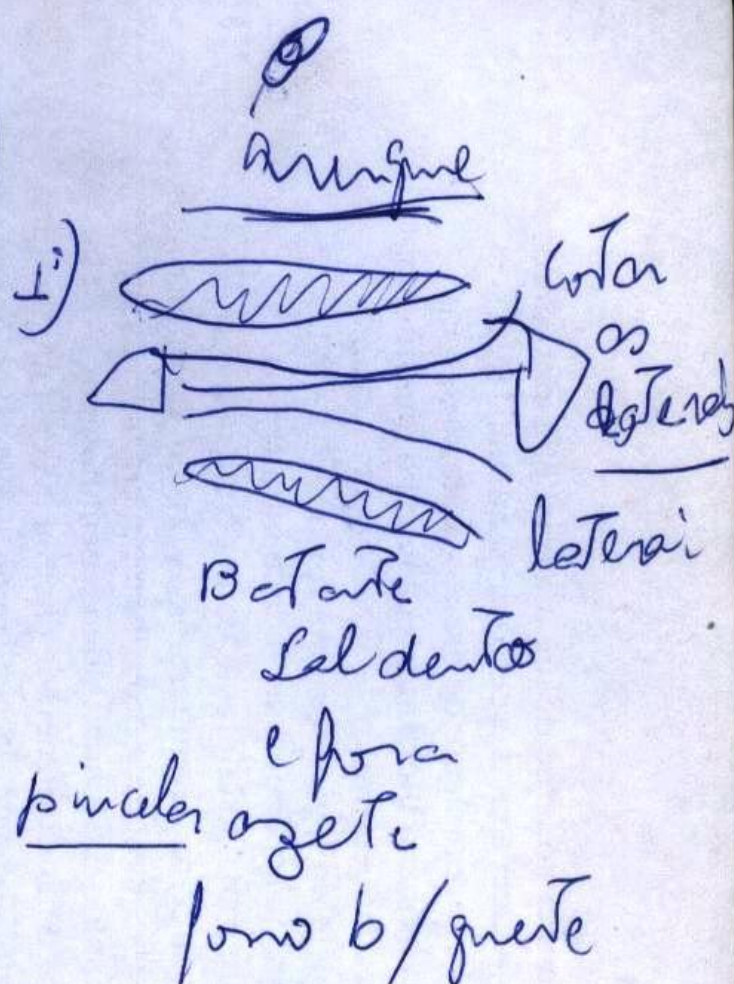 Arenque
1º)
Cortar
os
laterais
Batata
Sal dentro
e fora
pincelar azeite
forno b/quente